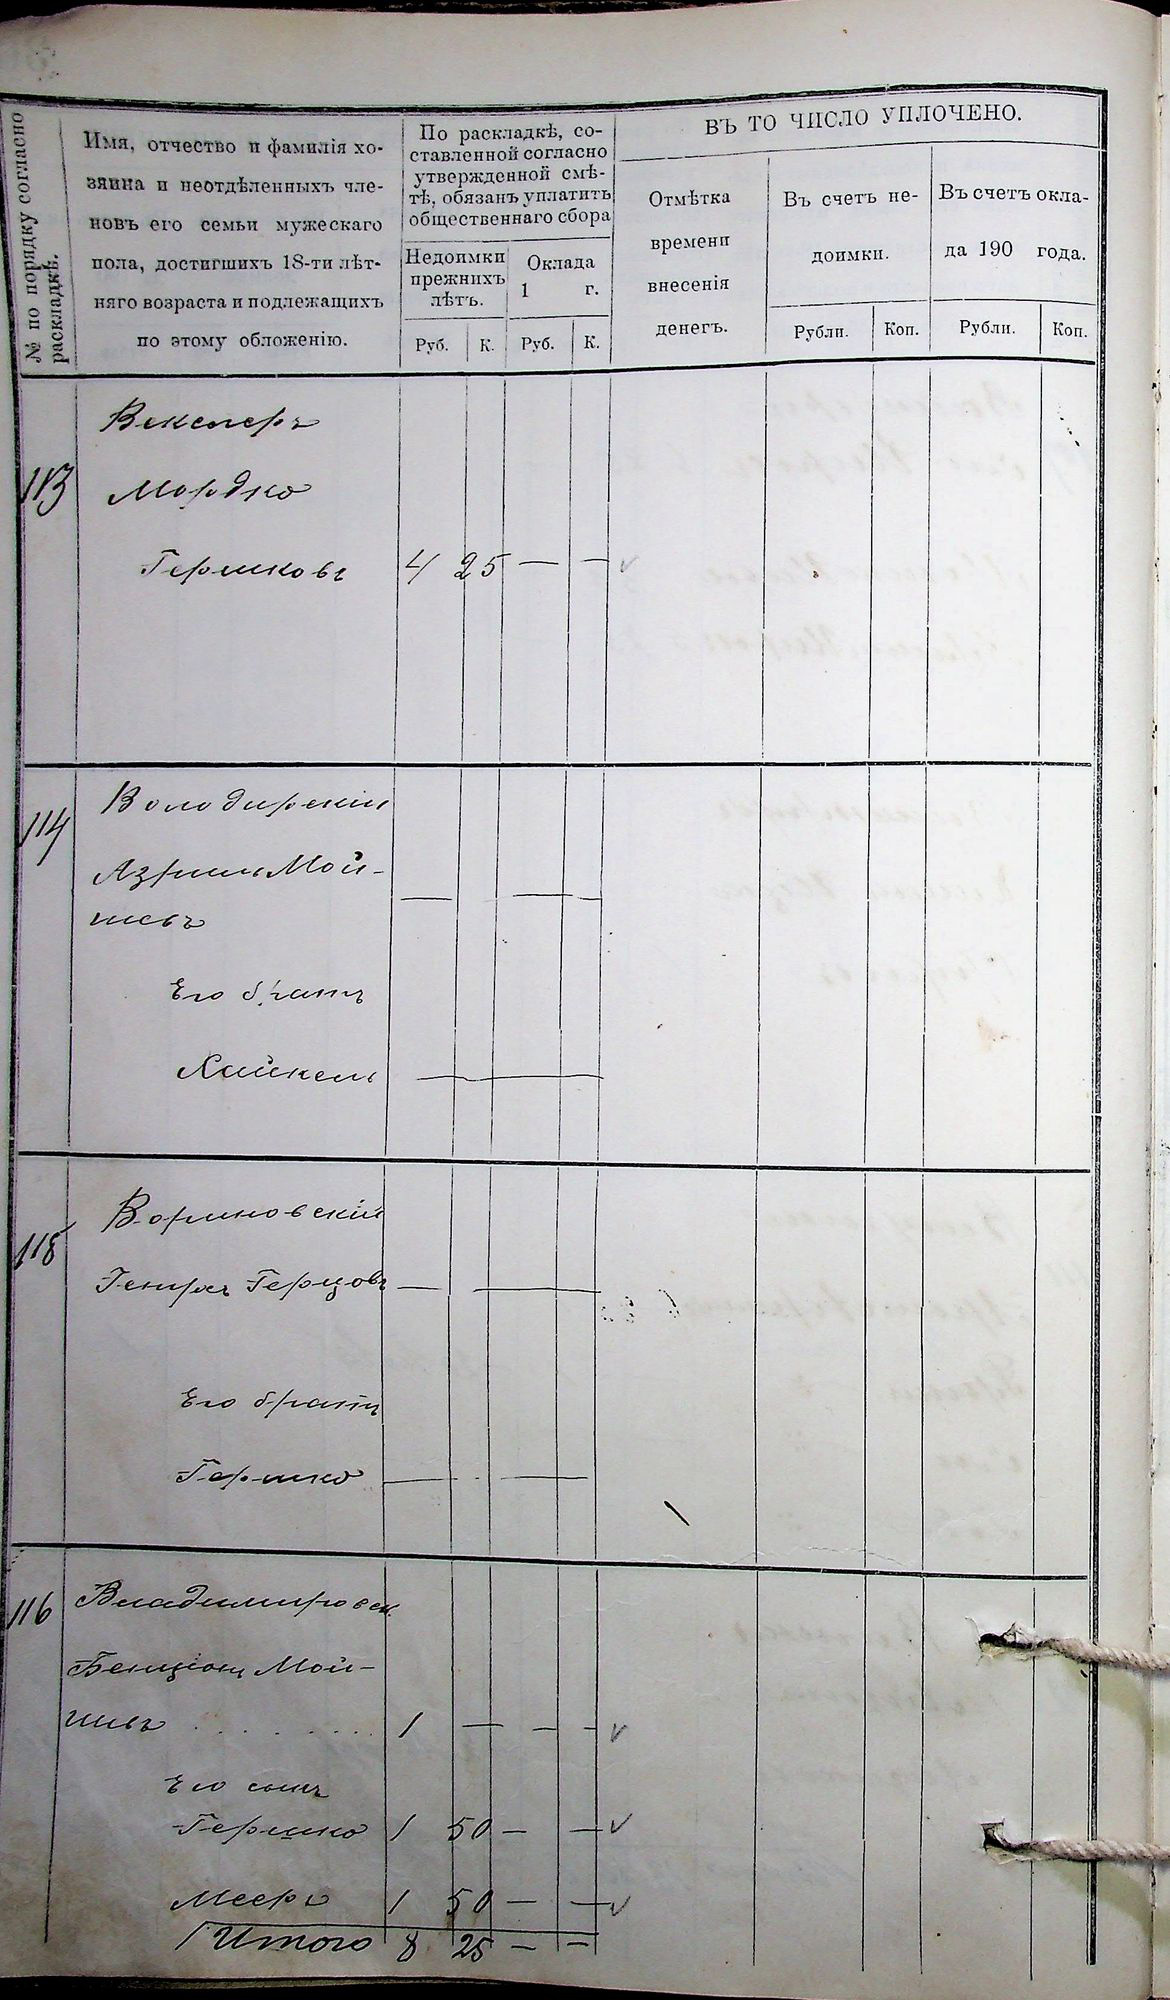 № по порядку согласно
раскладкѣ.
Имя, отчество и фамилія хо-
зяина и неотдѣленныхъ чле-
новъ его семьи мужескаго
пола, достигшихъ 18-ти лѣт-
няго возраста и подлежащихъ
по этому обложенію.
По раскладкѣ, со-
ставленной согласно
утвержденной смѣ-
тѣ, обязанъ уплатить
общественнаго сбора
Недоимки
прежнихъ
лѣтъ.
Оклада
1 г.
Руб. К. Руб. К.
ВЪ ТО ЧИСЛО УПЛОЧЕНО.
Отмѣтка
времени
внесенія
денегъ.
Въ счетъ не-
доимки.
Рубли. Коп.
Въ счетъ окла-
да 190 года.
Рубли. Коп.
Векслеръ
113 Мордко
Гершковъ 4 25 — — ✓
Володирскій
114
Азриль Мой-
шевъ — — —
Его братъ
Хайкель —
Вориновскій
115
Генихъ Герцовъ — —
Его братъ
Гершко — —
116 Владимировск
Бенціонъ Мой-
шевъ . . . . . . 1 — — — ✓
Его сынъ
Гершко 1 50 — — ✓
Мееръ 1 50 — — ✓
Итого 8 25 — —